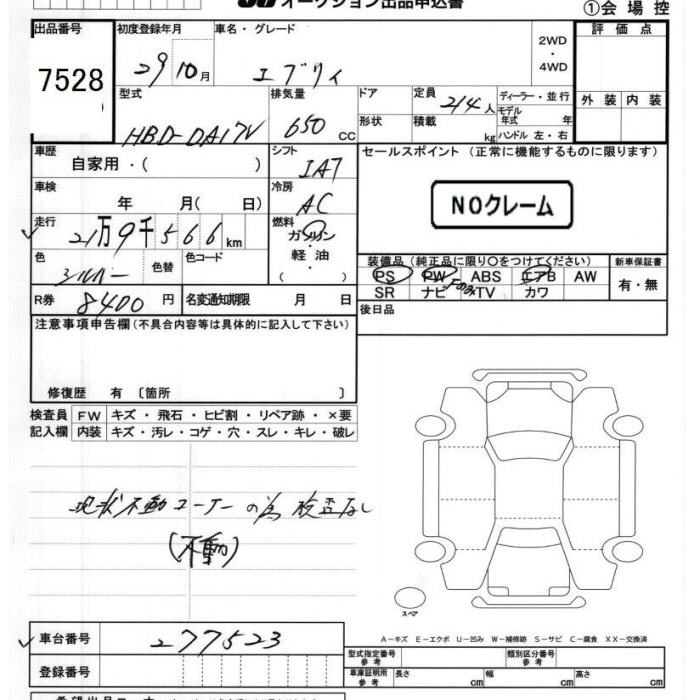 オークション出品申込書
①会 場 控
出品番号 7528
初度登録年月 29 10月
車名・グレード エブリイ
2WD ・ 4WD
評 価 点
外 装 内 装
型式 HBD-DA17V
排気量 650 cc
ドア
形状
定員 2/4人
積載 kg
ディーラー・並行
モデル年式 年
ハンドル 左・右
車歴 自家用・( )
シフト IA7
セールスポイント（正常に機能するものに限ります）
NOクレーム
車検 年 月( 日)
冷房 AC
走行 21万9千566km
燃料 ガソリン・軽油・( )
色 シルバー 色替
色コード
装備品（純正品に限り○をつけてください）
PS PW ABS エアB AW
SR ナビ TV カワ
新車保証書
有・無
R券 8400円
名変通知期限 月 日
後日品
注意事項申告欄(不具合内容等は具体的に記入して下さい)
修復歴 有〔箇所 〕
検査員記入欄
FW キズ・飛石・ヒビ割・リペア跡・×要
内装 キズ・汚レ・コゲ・穴・スレ・キレ・破レ
現状不動コーナーの為検査なし
(不動)
スペア
A－キズ E－エクボ U－凹み W－補修跡 S－サビ C－腐食 XX－交換済
車台番号 277523
登録番号
型式指定番号 参考
類別区分番号 参考
車庫証明用 参考 長さ cm 幅 cm 高さ cm